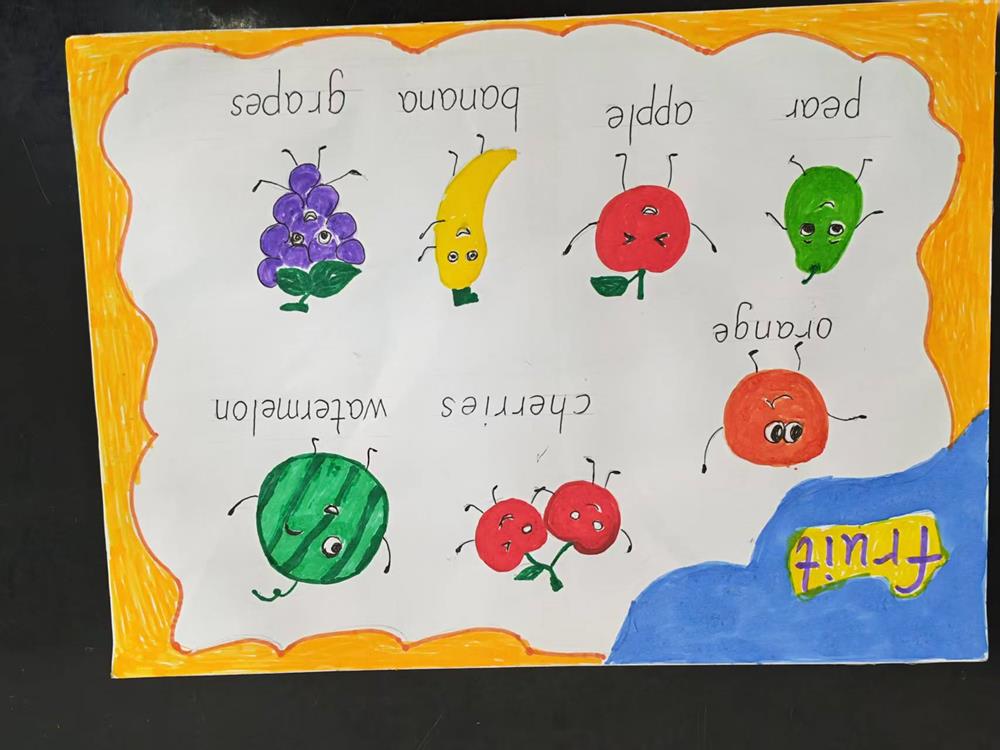 fruit
orange
cherries
watermelon
pear
apple
banana
grapes